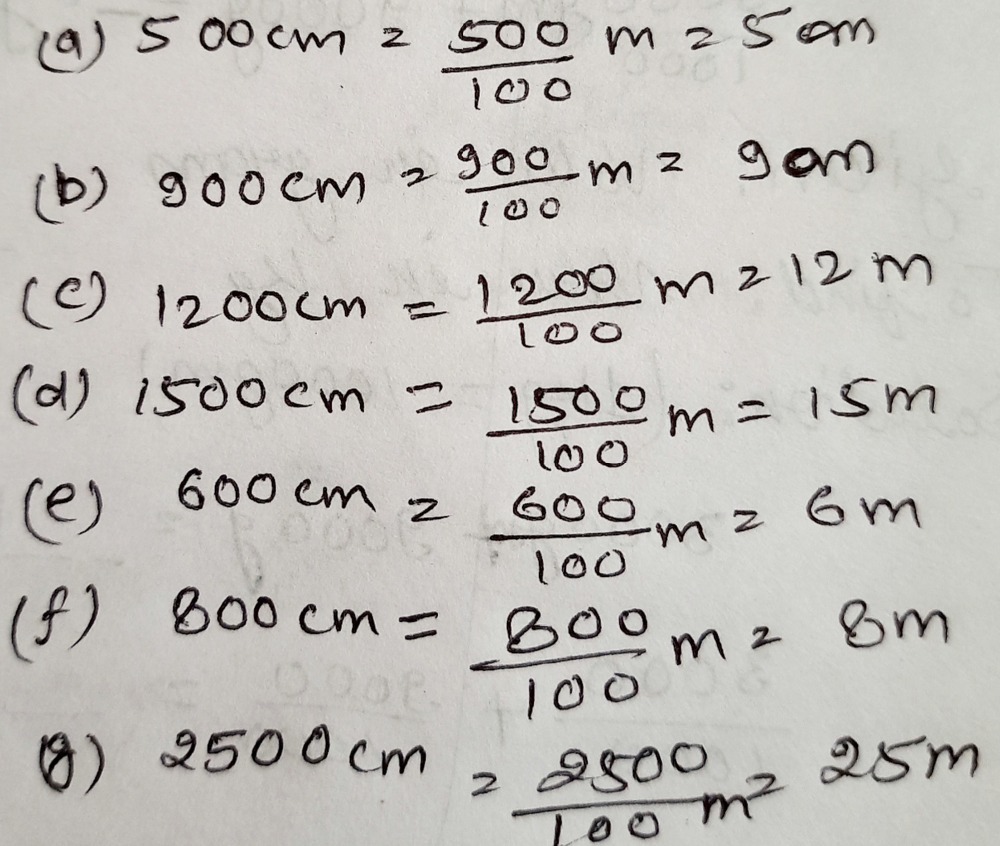 (a) 500cm = 500/100 m = 5 cm
(b) 900cm = 900/100 m = 9 cm
(c) 1200cm = 1200/100 m = 12 m
(d) 1500cm = 1500/100 m = 15m
(e) 600cm = 600/100 m = 6m
(f) 800cm = 800/100 m = 8m
(g) 2500cm = 2500/100 m = 25m